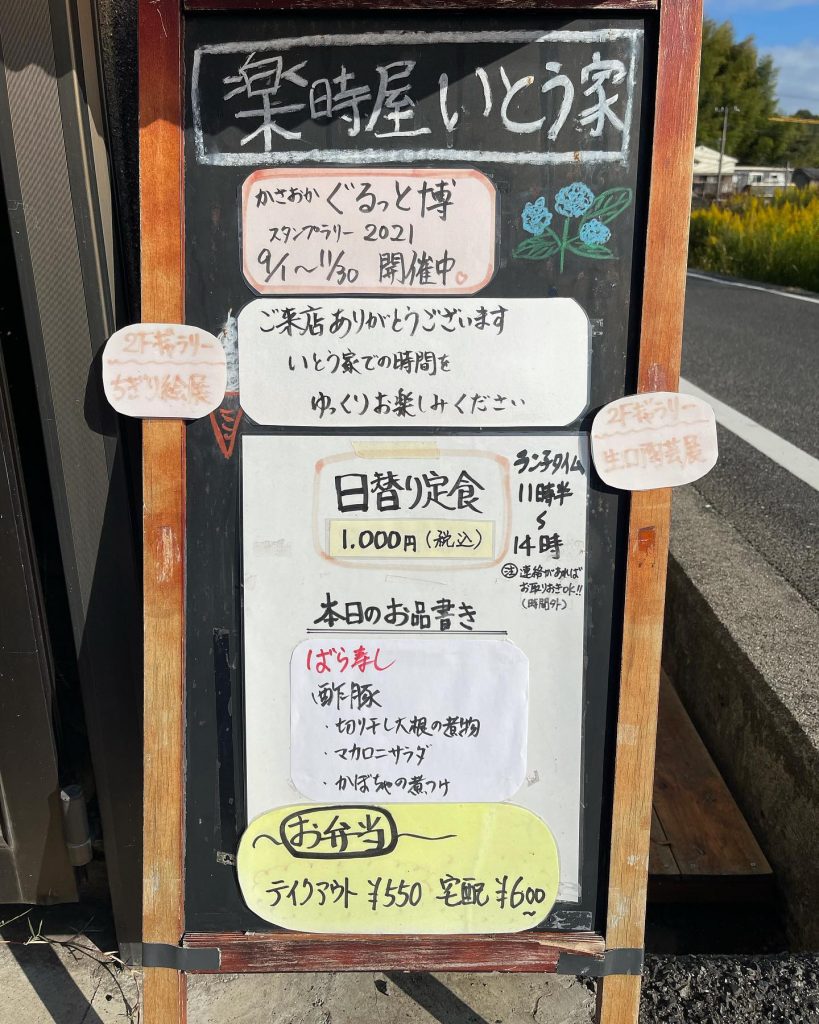 楽時屋 いとう家
かさおか ぐるっと博
スタンプラリー 2021
9/1〜11/30 開催中
ご来店ありがとうございます
いとう家での時間を
ゆっくりお楽しみください
2Fギャラリー
ちぎり絵展
2Fギャラリー
生口陶芸展
日替り定食
1.000円(税込)
ランチタイム
11時半
〜
14時
注 連絡があれば
お取りおきOK!!
(時間外)
本日のお品書き
ばら寿し
酢豚
・切り干し大根の煮物
・マカロニサラダ
・かぼちゃの煮つけ
〜お弁当〜
テイクアウト ¥550 宅配 ¥600〜